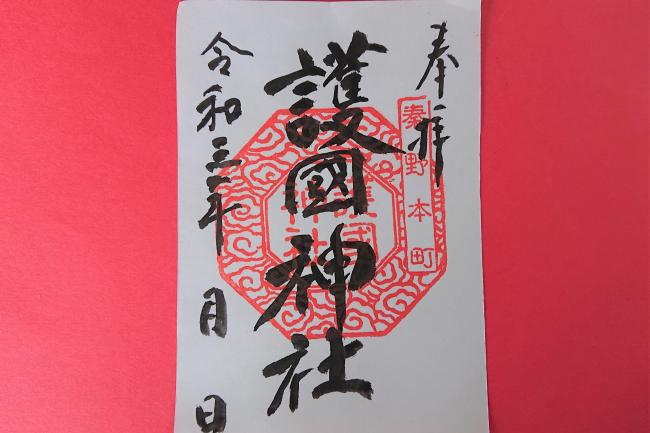 奉拝
秦野本町
護國神社
令和三年 月 日